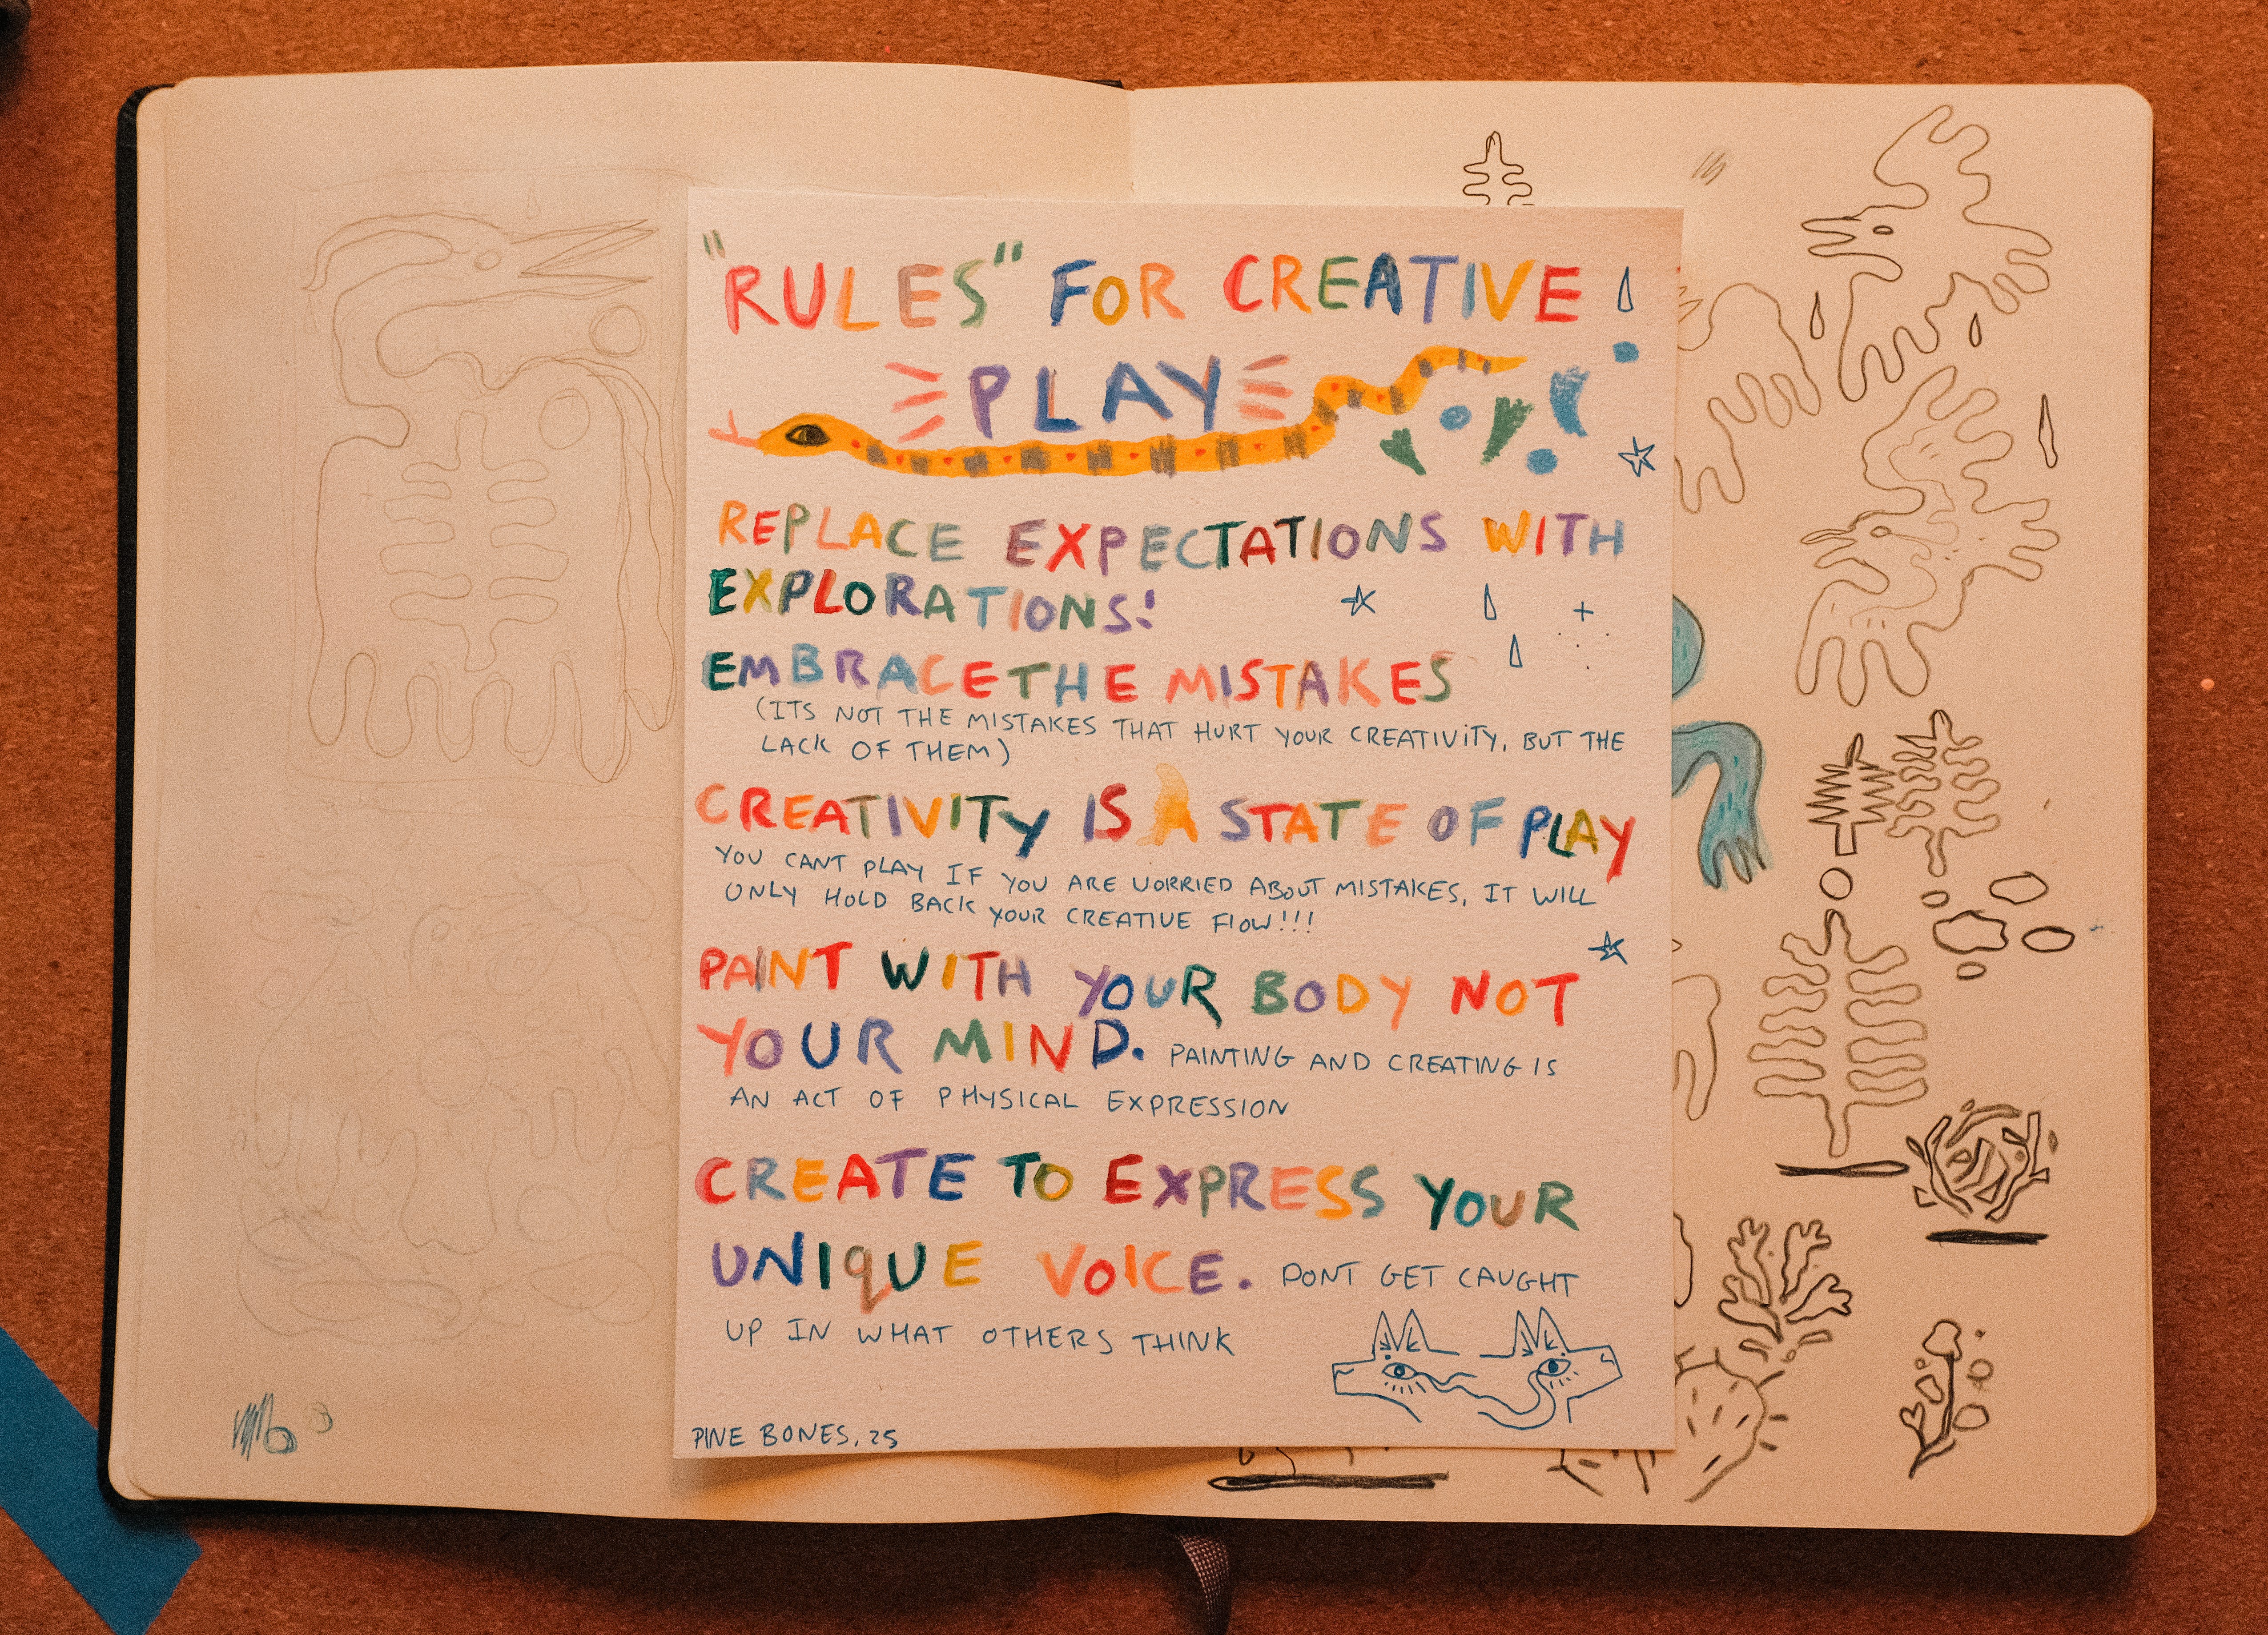 "RULES" FOR CREATIVE
PLAY
REPLACE EXPECTATIONS WITH
EXPLORATIONS!
EMBRACE THE MISTAKES
(ITS NOT THE MISTAKES THAT HURT YOUR CREATIVITY, BUT THE
LACK OF THEM)
CREATIVITY IS A STATE OF PLAY
YOU CANT PLAY IF YOU ARE WORRIED ABOUT MISTAKES, IT WILL
ONLY HOLD BACK YOUR CREATIVE FLOW!!!
PAINT WITH YOUR BODY NOT
YOUR MIND. PAINTING AND CREATING IS
AN ACT OF PHYSICAL EXPRESSION
CREATE TO EXPRESS YOUR
UNIQUE VOICE. DONT GET CAUGHT
UP IN WHAT OTHERS THINK
PINE BONES, 25